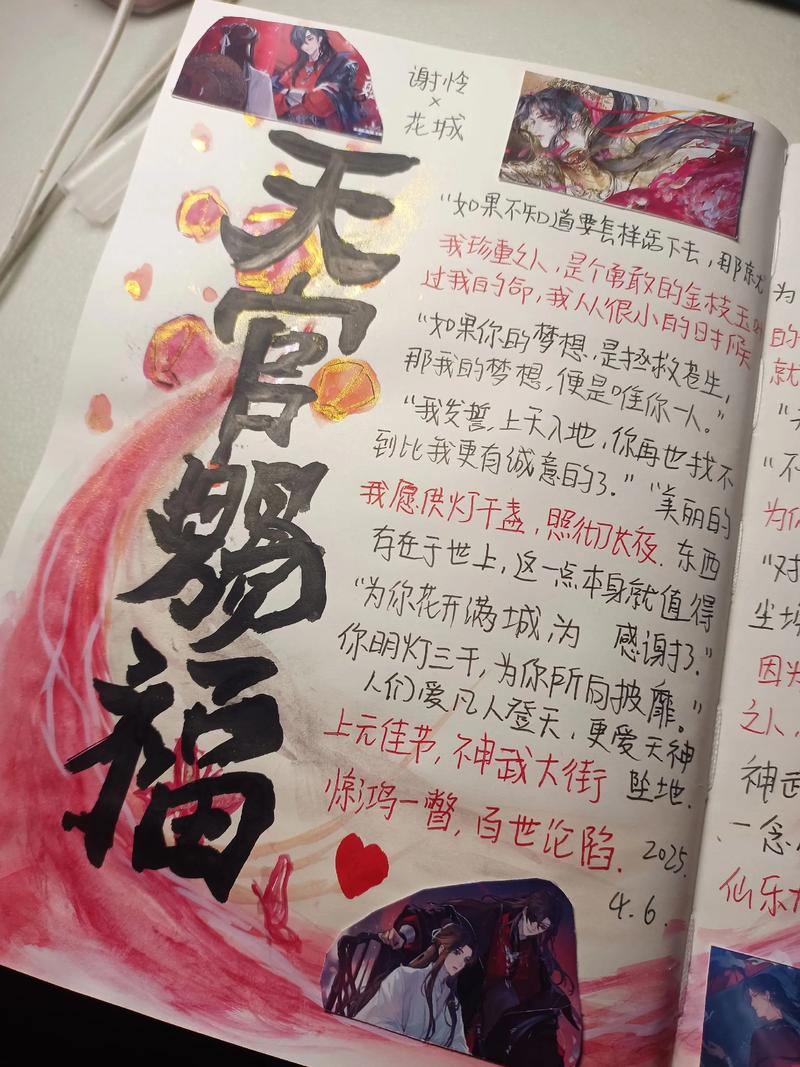 谢怜
×
花城
天官赐福
"如果不知道要怎样活下去,那就
我珍重之人,是个勇敢的金枝玉
过我的命,我从很小的时候
"如果你的梦想,是拯救苍生,
那我的梦想,便是唯你一人。"
"我发誓,上天入地,你再也找不
到比我更有诚意的了。" "美丽的
我愿供灯千盏,照彻长夜. 东西
存在于世上,这一点本身就值得
"为你花开满城,为 感谢了."
你明灯三千,为你所向披靡。"
人们爱凡人登天,更爱天神
上元佳节,神武大街 坠地.
惊鸿一瞥,百世沦陷. 2025.
4.6.
为
的
就
"不
为你
"对
尘埃
因为
之人,
神武
一念
仙乐